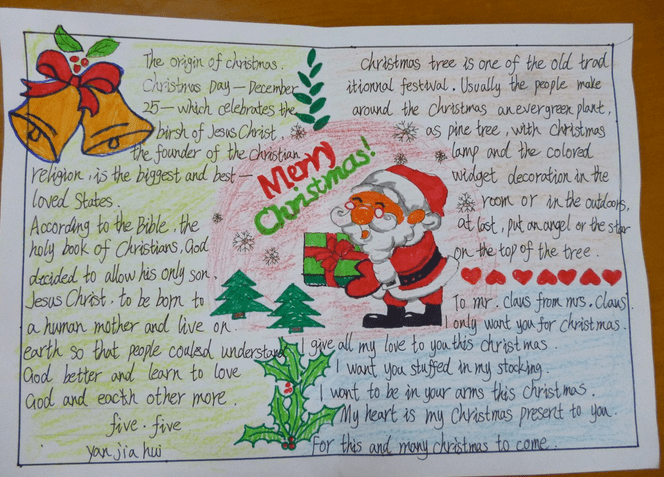 The origin of christmas.
Christmas Day — December
25 — which celebrates the
birsh of Jesus Christ,
the founder of the Christian
religion, is the biggest and best—
loved States.
According to the Bible, the
holy book of Christians, God
decided to allow his only son.
Jesus Christ, to be born to
a human mother and live on
earth so that people could understand
God better and learn to love
God and each other more.
five . five
yan jia hui
Merry
Christmas!
Christmas tree is one of the old trad
itionnal festival. Usually the people make
around the Christmas an evergreen plant,
as pine tree, with christmas
lamp and the colored
widget decoration in the
room or in the outdoors,
at last, put an angel or the star
on the top of the tree.
To mr. claus from mrs. Claus.
I only want you for Christmas.
I give all my love to you this christmas.
I want you stuffed in my stocking.
I want to be in your arms this christmas.
My heart is my Christmas present to you.
For this and many christmas to come.